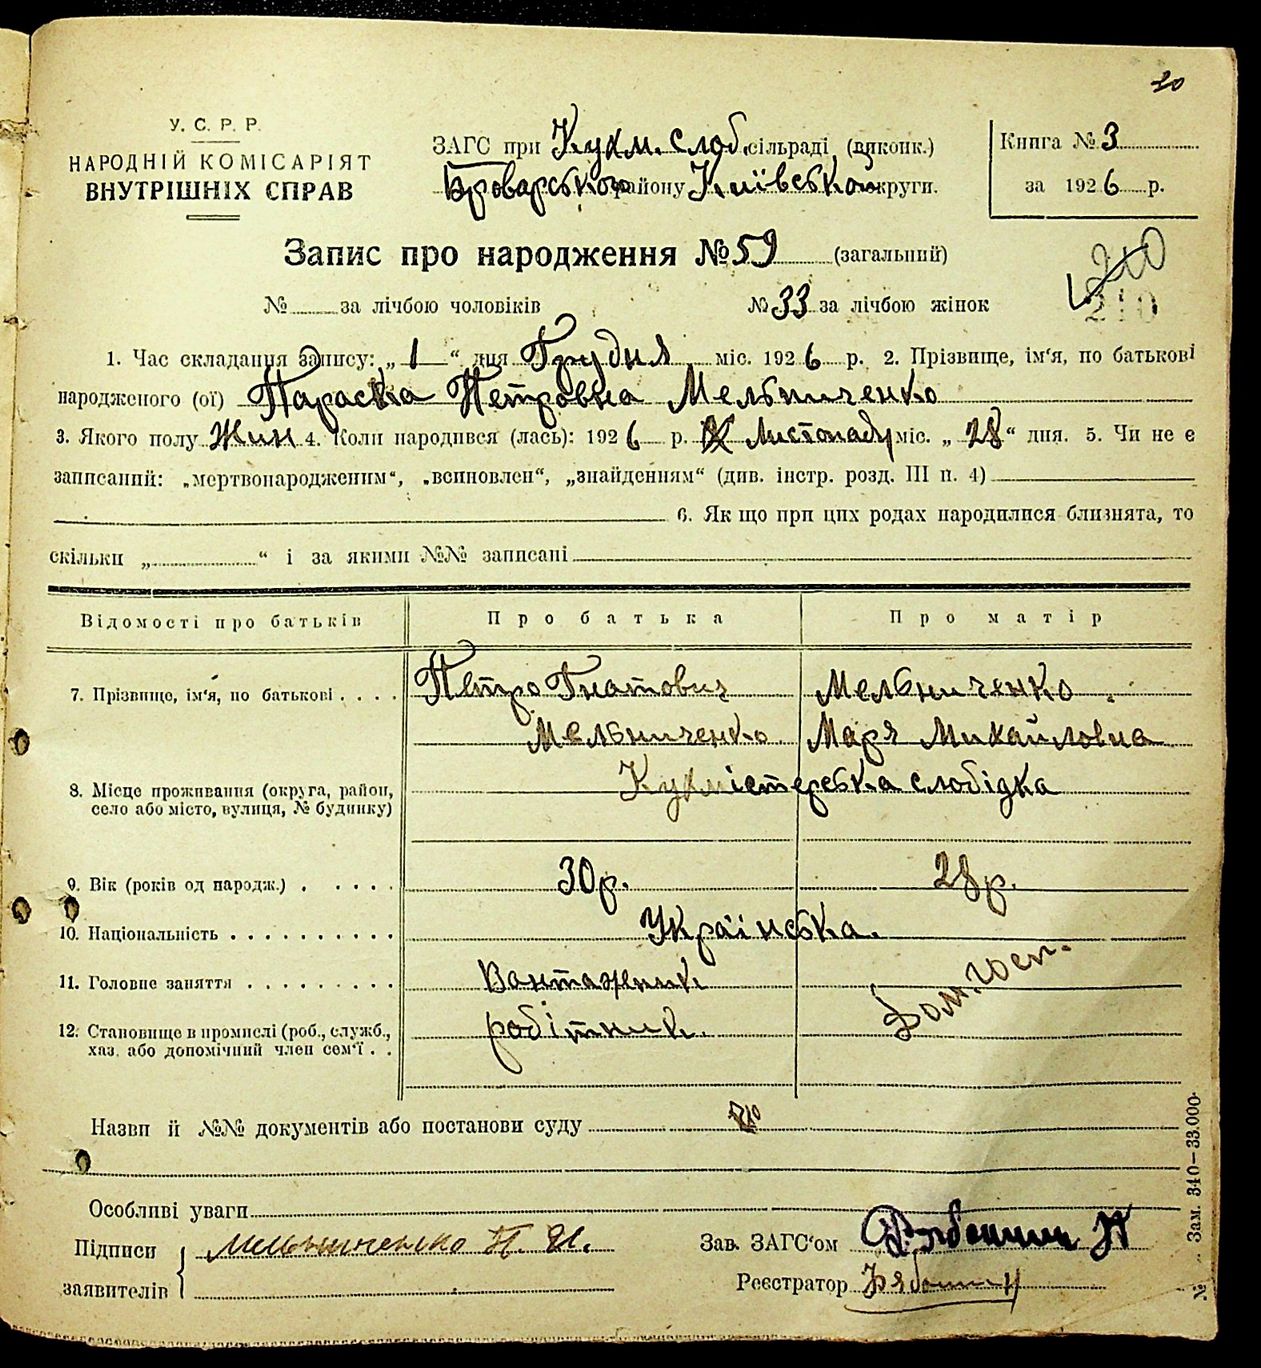 20
У. С. Р. Р.
НАРОДНІЙ КОМІСАРІЯТ
ВНУТРІШНІХ СПРАВ
ЗАГС при Кухм. слоб. сільраді (виконк.)
Броварського району Київської округи.
Книга № 3
за 1926 р.
Запис про народження № 59 (загальний)
210
210
№ за лічбою чоловіків № 33 за лічбою жінок
1. Час складання запису: „1“ дня Грудня міс. 1926 р. 2. Прізвище, ім'я, по батькові
народженого (ої) Параска Петровна Мельниченко
3. Якого полу Жин 4. Коли народився (лась): 1926 р. Листопаду міс. „28“ дня. 5. Чи не є
записаний: „мертвонародженим“, „всиновлен“, „знайденням“ (див. інстр. розд. III п. 4)
6. Як що при цих родах народилися близнята, то
скільки „ “ і за якими №№ записані
Відомості про батьків Про батька Про матір
7. Прізвище, ім'я, по батькові . . . . Петро Гнатович Мельниченко
Мельниченко Маря Михайловна
8. Місце проживання (округа, район, село або місто, вулиця, № будинку) Кухмістерська слобідка
9. Вік (років од народж.) . . . . . 30 р. 28 р.
10. Національність . . . . . . . . . . Українська.
11. Головне заняття . . . . . . . . . Вантажник Дом. госп.
12. Становище в промислі (роб., служб., хаз. або допомічний член сем'ї . . робітник.
Назви й №№ документів або постанови суду
Особливі уваги
Підписи заявителів Мельниченко П. И.
Зав. ЗАГС'ом
Реєстратор
Зам. 340—33.000.